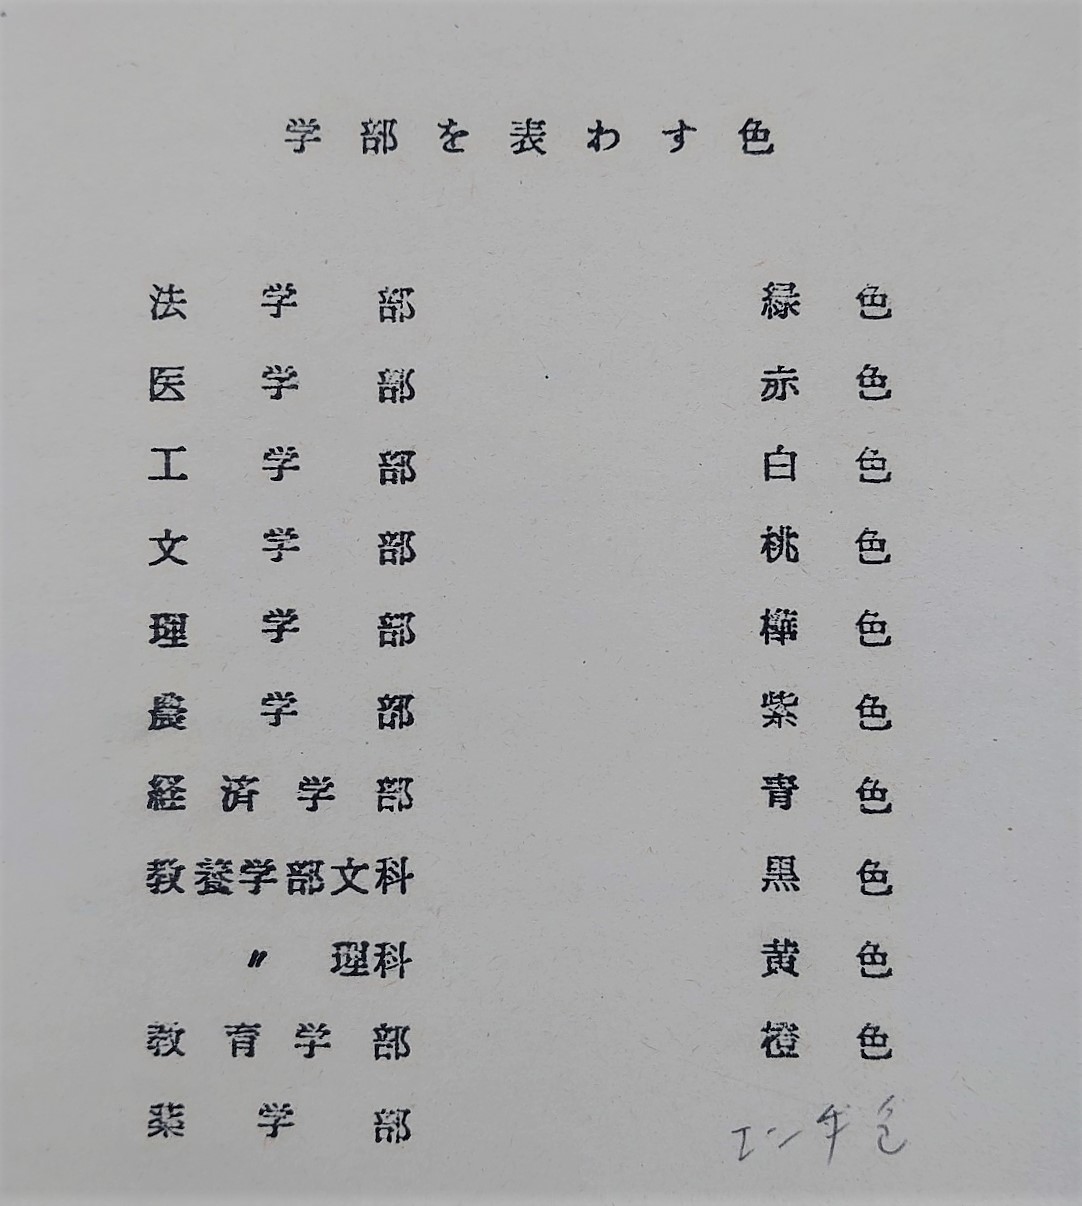 学部を表わす色
法学部 緑色
医学部 赤色
工学部 白色
文学部 桃色
理学部 樺色
農学部 紫色
経済学部 青色
教養学部文科 黒色
〃 理科 黄色
教育学部 橙色
薬学部 エンヂ色